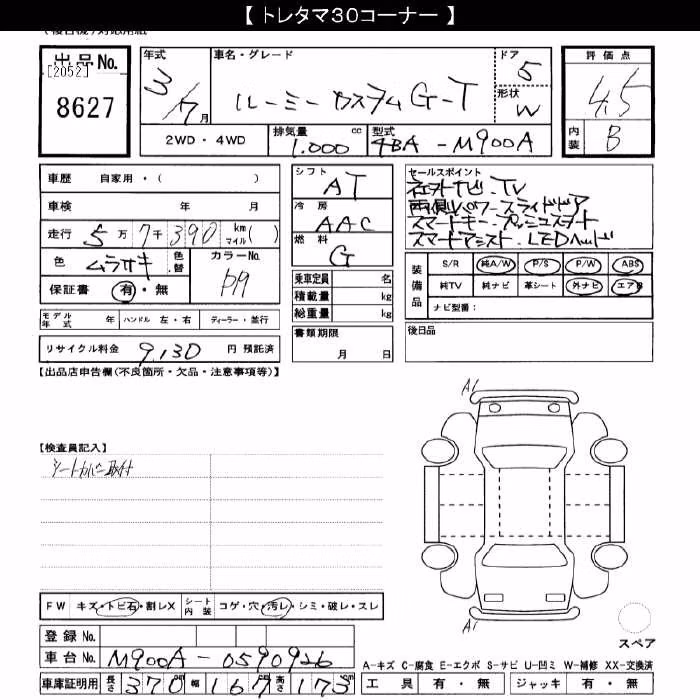 【 トレタマ30コーナー 】
(複合機)対応用紙
出品No. [2052] 8627
年式 3/7月
車名・グレード ルーミー カスタムG-T
ドア 5
形状 W
評価点 4.5
内装 B
2WD・4WD
排気量 cc 1.000
型式 4BA-M900A
車歴 自家用・( )
車検 年 月
走行 5万7千390 km(マイル)
色 ムラサキ 色替 カラーNo. P19
保証書 有・無
モデル年式 年 ハンドル 左・右 ディーラー・並行
リサイクル料金 9,130 円 預託済
シフト AT
冷房 AAC
燃料 G
乗車定員 名
積載量 kg
総重量 kg
書類期限
月 日
セールスポイント
ネオトナビ.TV
両側パワースライドドア
スマートキー.プッシュスタート
スマートアシスト.LEDヘッド
装備品 S/R 純A/W P/S P/W ABS
純TV 純ナビ 革シート 外ナビ エアB
ナビ型番:
後日品
【出品店申告欄(不良箇所・欠品・注意事項等)】
【検査員記入】
シートカバー取付
A1
A1
スペア
FW キズ・トビ石・割レX シート内装 コゲ・穴・汚レ・シミ・破レ・スレ
登録No.
車台No. M900A-0590926
車庫証明用 長さ 370cm 幅 167 高さ 173cm
A-キズ C-腐食 E-エクボ S-サビ U-凹ミ W-補修 XX-交換済
工具 有・無 ジャッキ 有・無